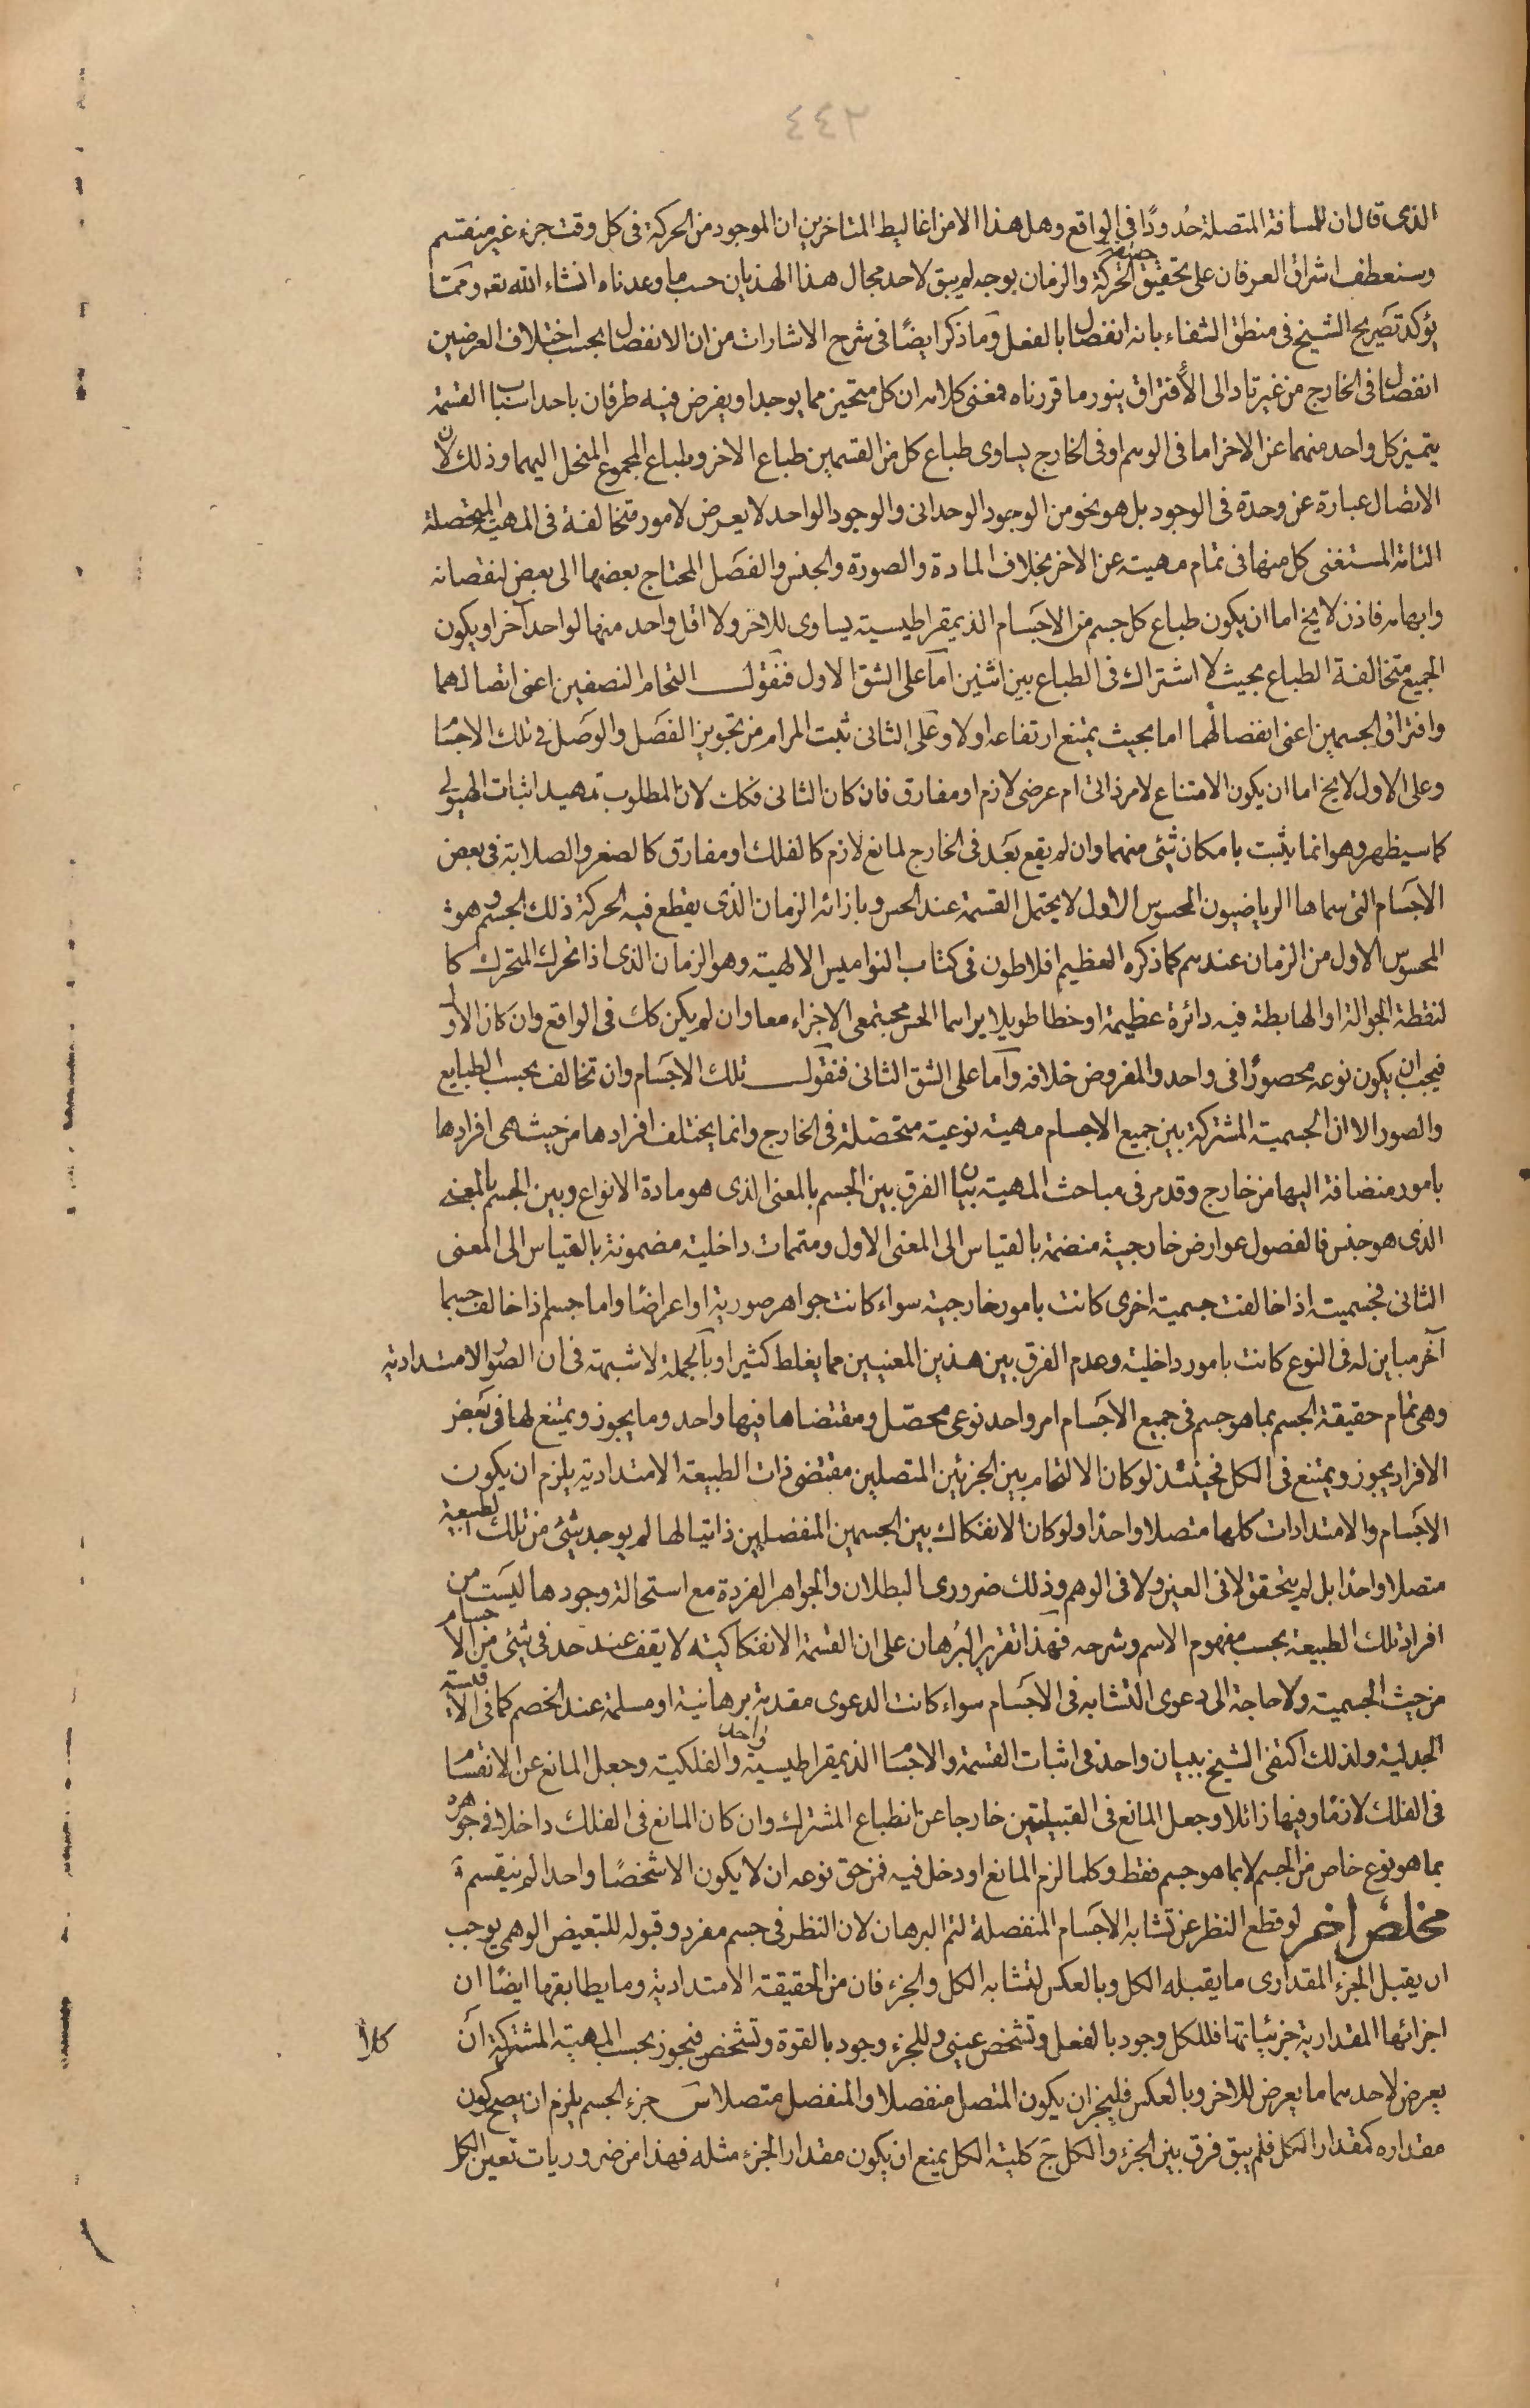 ٤٤٢
الذى قال ان للمسافة المتصلة حُدودًا فى الواقع وهل هذا الا من اغاليط المتاخرين ان الموجود من الحركة فى كل وقت جزء غير منقسم
وسنعطف اشراق العرفان على تحقيق حقيقة الحركة والزمان بوجه لم يبق لاحد مجال هذا الهذيان حسب ما وعدناه انشاء الله تعه وممّا
يؤكد تصريح الشيخ فى منطق الشفاء بانه انفصال بالفعل وما ذكر ايضًا فى شرح الاشارات من ان الانفصال بحسب اختلاف العرضين
انفصال فى الخارج من غير تاد الى الأفتراق ينور ما قررناه فمعنى كلامه ان كل متحيز مما يوجد او يفرض فيه طرفان باحد اسباب القسمة
يتميز كل واحد منهما عن الاخر اما فى الوهم او فى الخارج يساوى طباع كل من القسمين طباع الاخر وطباع المجموع المنحل اليهما وذلك لان
الاتصال عبارة عن وحدة فى الوجود بل هو نحو من الوجود الوحدانى والوجود الواحد لا يعرض لامور متخالفة فى المهية المتحصلة
التامة المستغنى كل منها فى تمام مهيته عن الاخر بخلاف المادة والصورة والجنس والفصَل المحتاج بعضها الى بعض لنقصانه
وابهامه فاذن لا يخ اما ان يكون طباع كل جسم من الاجسَام الذيمقراطيسية يساوى للاخر ولا اقل واحد منها لواحد آخر او يكون
الجميع متخالفة الطباع بحيث لا اشتراك فى الطباع بين اثنين امآ على الشق الاول فنقول التحام النصفين اعنى اتصالهما
وافتراق الجسمين اعنى انفصالهما اما بحيث يمتنع ارتفاعه اولا وعلى الثانى ثبت المرام من تجويز الفصَل والوصَل فى تلك الاجسَام
وعلى الاول لا يخ اما ان يكون الامتناع لامر ذاتى ام عرضى لازم او مفارق فان كان الثانى فكك لان المطلوب تمهيد اثبات الهيولى
كما سيظهر وهو انما يثبت بامكان شئ منهما وان لم يقع بعَد فى الخارج لمانع لازم كالفلك او مفارق كالصغر والصلابة فى بعض
الاجسَام التى سماها الرياضيون المحسوس الاول لا يحتمل القسمة عند الحس وبازائه الزمان الذى يقطع فيه الحركة ذلك الجسم وهو
المحسوس الاول من الزمان عندهم كما ذكره العظيم افلاطون فى كتاب النواميس الالهية وهو الزمان الذى اذا تحرك المتحرك كا
لنقطة الجوالة او الهابطة فيه دائرة عظيمة او خطا طويلا يراهما الحس مجتمعى الاجزاء معا وان لم يكن كك فى الواقع وان كان الاول
فيجب ان يكون نوعه محصورًا فى واحد والمفروض خلافه وآما على الشق الثانى فنقول تلك الاجسَام وان تخالف بحسب الطبايع
والصور الا ان الجسمية المشتركة بين جميع الاجسام مهية نوعية متحصّلة فى الخارج وانما يختلف افرادها من حيث هى افرادها
بامور منضافة اليها من خارج وقد مر فى مباحث المهية بيان الفرق بين الجسم بالمعنى الذى هو مادة الانواع وبين الجسم بالمعنى
الذى هو جنس فالفصول عوارض خارجية منضمة بالقياس الى المعنى الاول ومتممات داخلية مضمونة بالقياس الى المعنى
الثانى فجسمية اذا خالفت جسمية اخرى كانت بامور خارجية سواء كانت جواهر صورية او اعراضًا واما جسم اذا خالف جسما
آخر مباين له فى النوع كانت بامور داخلية وعدم الفرق بين هذين المعنيين مما يغلط كثيرا وبآلجملة لا شبهة فى ان الصُور الامتدادية
وهى تمام حقيقة الجسم بما هو جسم فى جميع الاجَسام امر واحد نوعى محصّل ومقتضاها فيها واحد وما يجوز ويمتنع لها فى بَعض
الافراد يجوز ويمتنع فى الكل فحينئذ لو كان الالتحام بين الجزئين المتصلين مقتضى ذات الطبيعة الامتدادية يلزم ان يكون
الاجَسام والامتدادات كلها متصلا واحدًا ولو كان الانفكاك بين الجسمين المنفصلين ذاتيا لها لم يوجد شئ من تلك الطبيعة
متصلا واحدًا بل لم يتحقق لا فى العين ولا فى الوهم وذلك ضرورى البطلان والجواهر الفردة مع استحالة وجودها ليسَت من
افراد تلك الطبيعة بحسب مفهوم الاسم وشرحه فهذا تقرير البُرهان على ان القسمة الانفكاكية لا يقف عند حد فى شئ من الاجسام
من حيث الجسمية ولا حاجة الى دعوى التشابه فى الاجَسام سواء كانت الدعوى مقدمة برهانية او مسلمة عند الخصم كما فى الاقيسة
الجدلية ولذلك اكتفى الشيخ ببيان واحد فى اثبات القسمة والاجسَام الذيمقراطيسية واحد والفلكية وجعل المانع عن الانقسَام
فى الفلك لازمًا وفيها زائلا وجعل المانع فى القبيلتين خارجا عن انطباع المشترك وان كان المانع فى الفلك داخلا فى جوهره
بما هو نوع خاص من الجسم لا بما هو جسم فقط وكلما لزم المانع او دخل فيه فمن حق نوعه ان لا يكون الا شخصًا واحدا لم ينقسم
مخلص اخر لو قطع النظر عن تشابه الاجَسام المنفصلة لتم البرهان لان النظر فى جسم مفرد وقبوله للتبعيض الوهمى يوجب
ان يقبل الجزء المقدارى ما يقبله الكل وبالعكس لتشابه الكل والجزء فان من الحقيقة الامتدادية وما يطابقها ايضًا ان
اجزائها المقدارية جزئياتها فللكل وجود بالفعل وتشخص عينى وللجزء وجود بالقوة وتشخص فيجوز بحسب المهية المشتركة ان
يعرض لاحدهما ما يعرض للاخر وبالعكس فليجز ان يكون المتصل منفصلا والمنفصل متصلا سَ جزء الجسم يلزم ان يصح كون
مقداره كمقدار الكل فلم يبق فرق بين الجزء والكل جَ كلية الكل يمنع ان يكون مقدار الجزء مثله فهذا من ضروريات تعين الكل
كلا